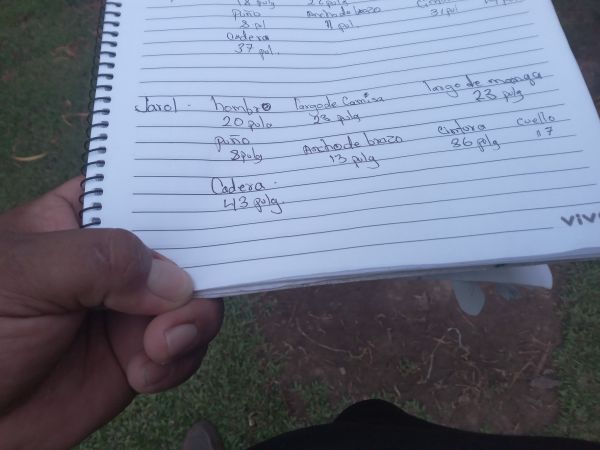 18 pulg
puño
8 pul
Ancho de brazo
11 pul
31 pul
Cadera
37 pul.
Jarol. hombro largo de Camisa largo de manga
20 pulg 23 pulg 23 pulg
puño Ancho de brazo Cintura Cuello
8 pulg 13 pulg 36 pulg 17
Cadera.
43 pulg.